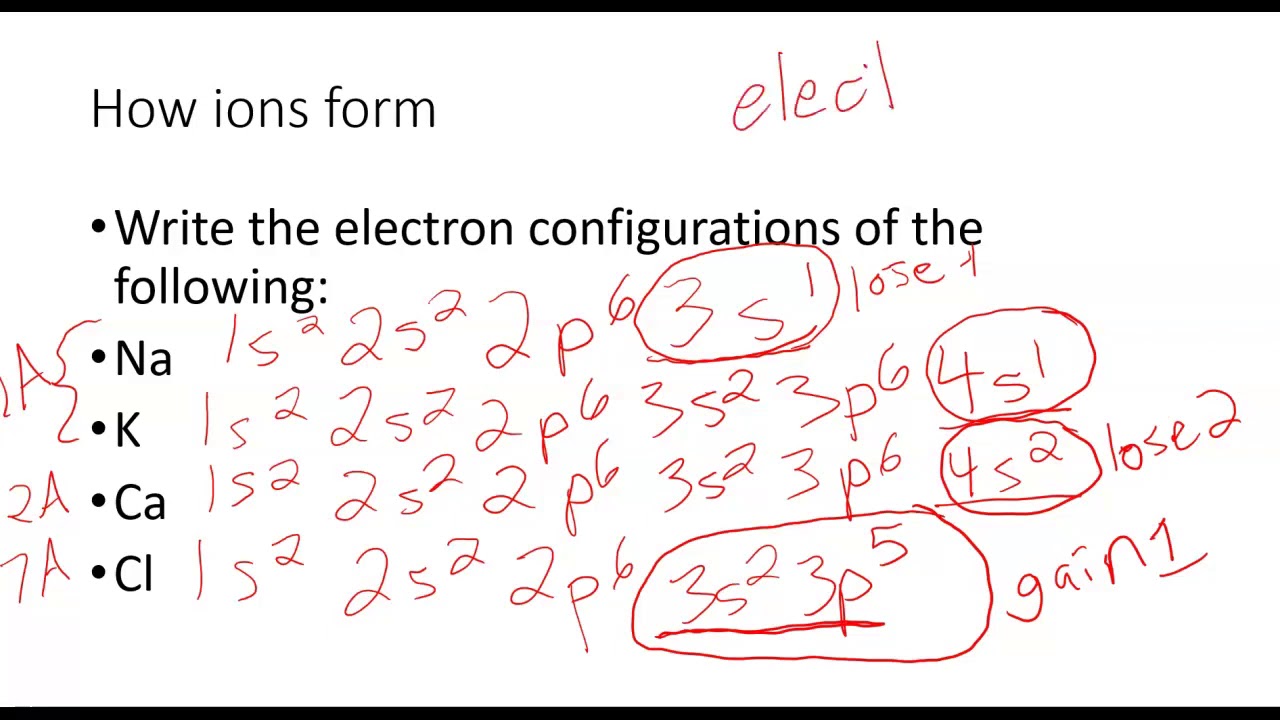 How ions form
• Write the electron configurations of the
following:
• Na 1s² 2s² 2p⁶ 3s¹ lose 1
• K 1s² 2s² 2p⁶ 3s² 3p⁶ 4s¹
2A • Ca 1s² 2s² 2p⁶ 3s² 3p⁶ 4s² lose 2
7A • Cl 1s² 2s² 2p⁶ 3s² 3p⁵ gain 1